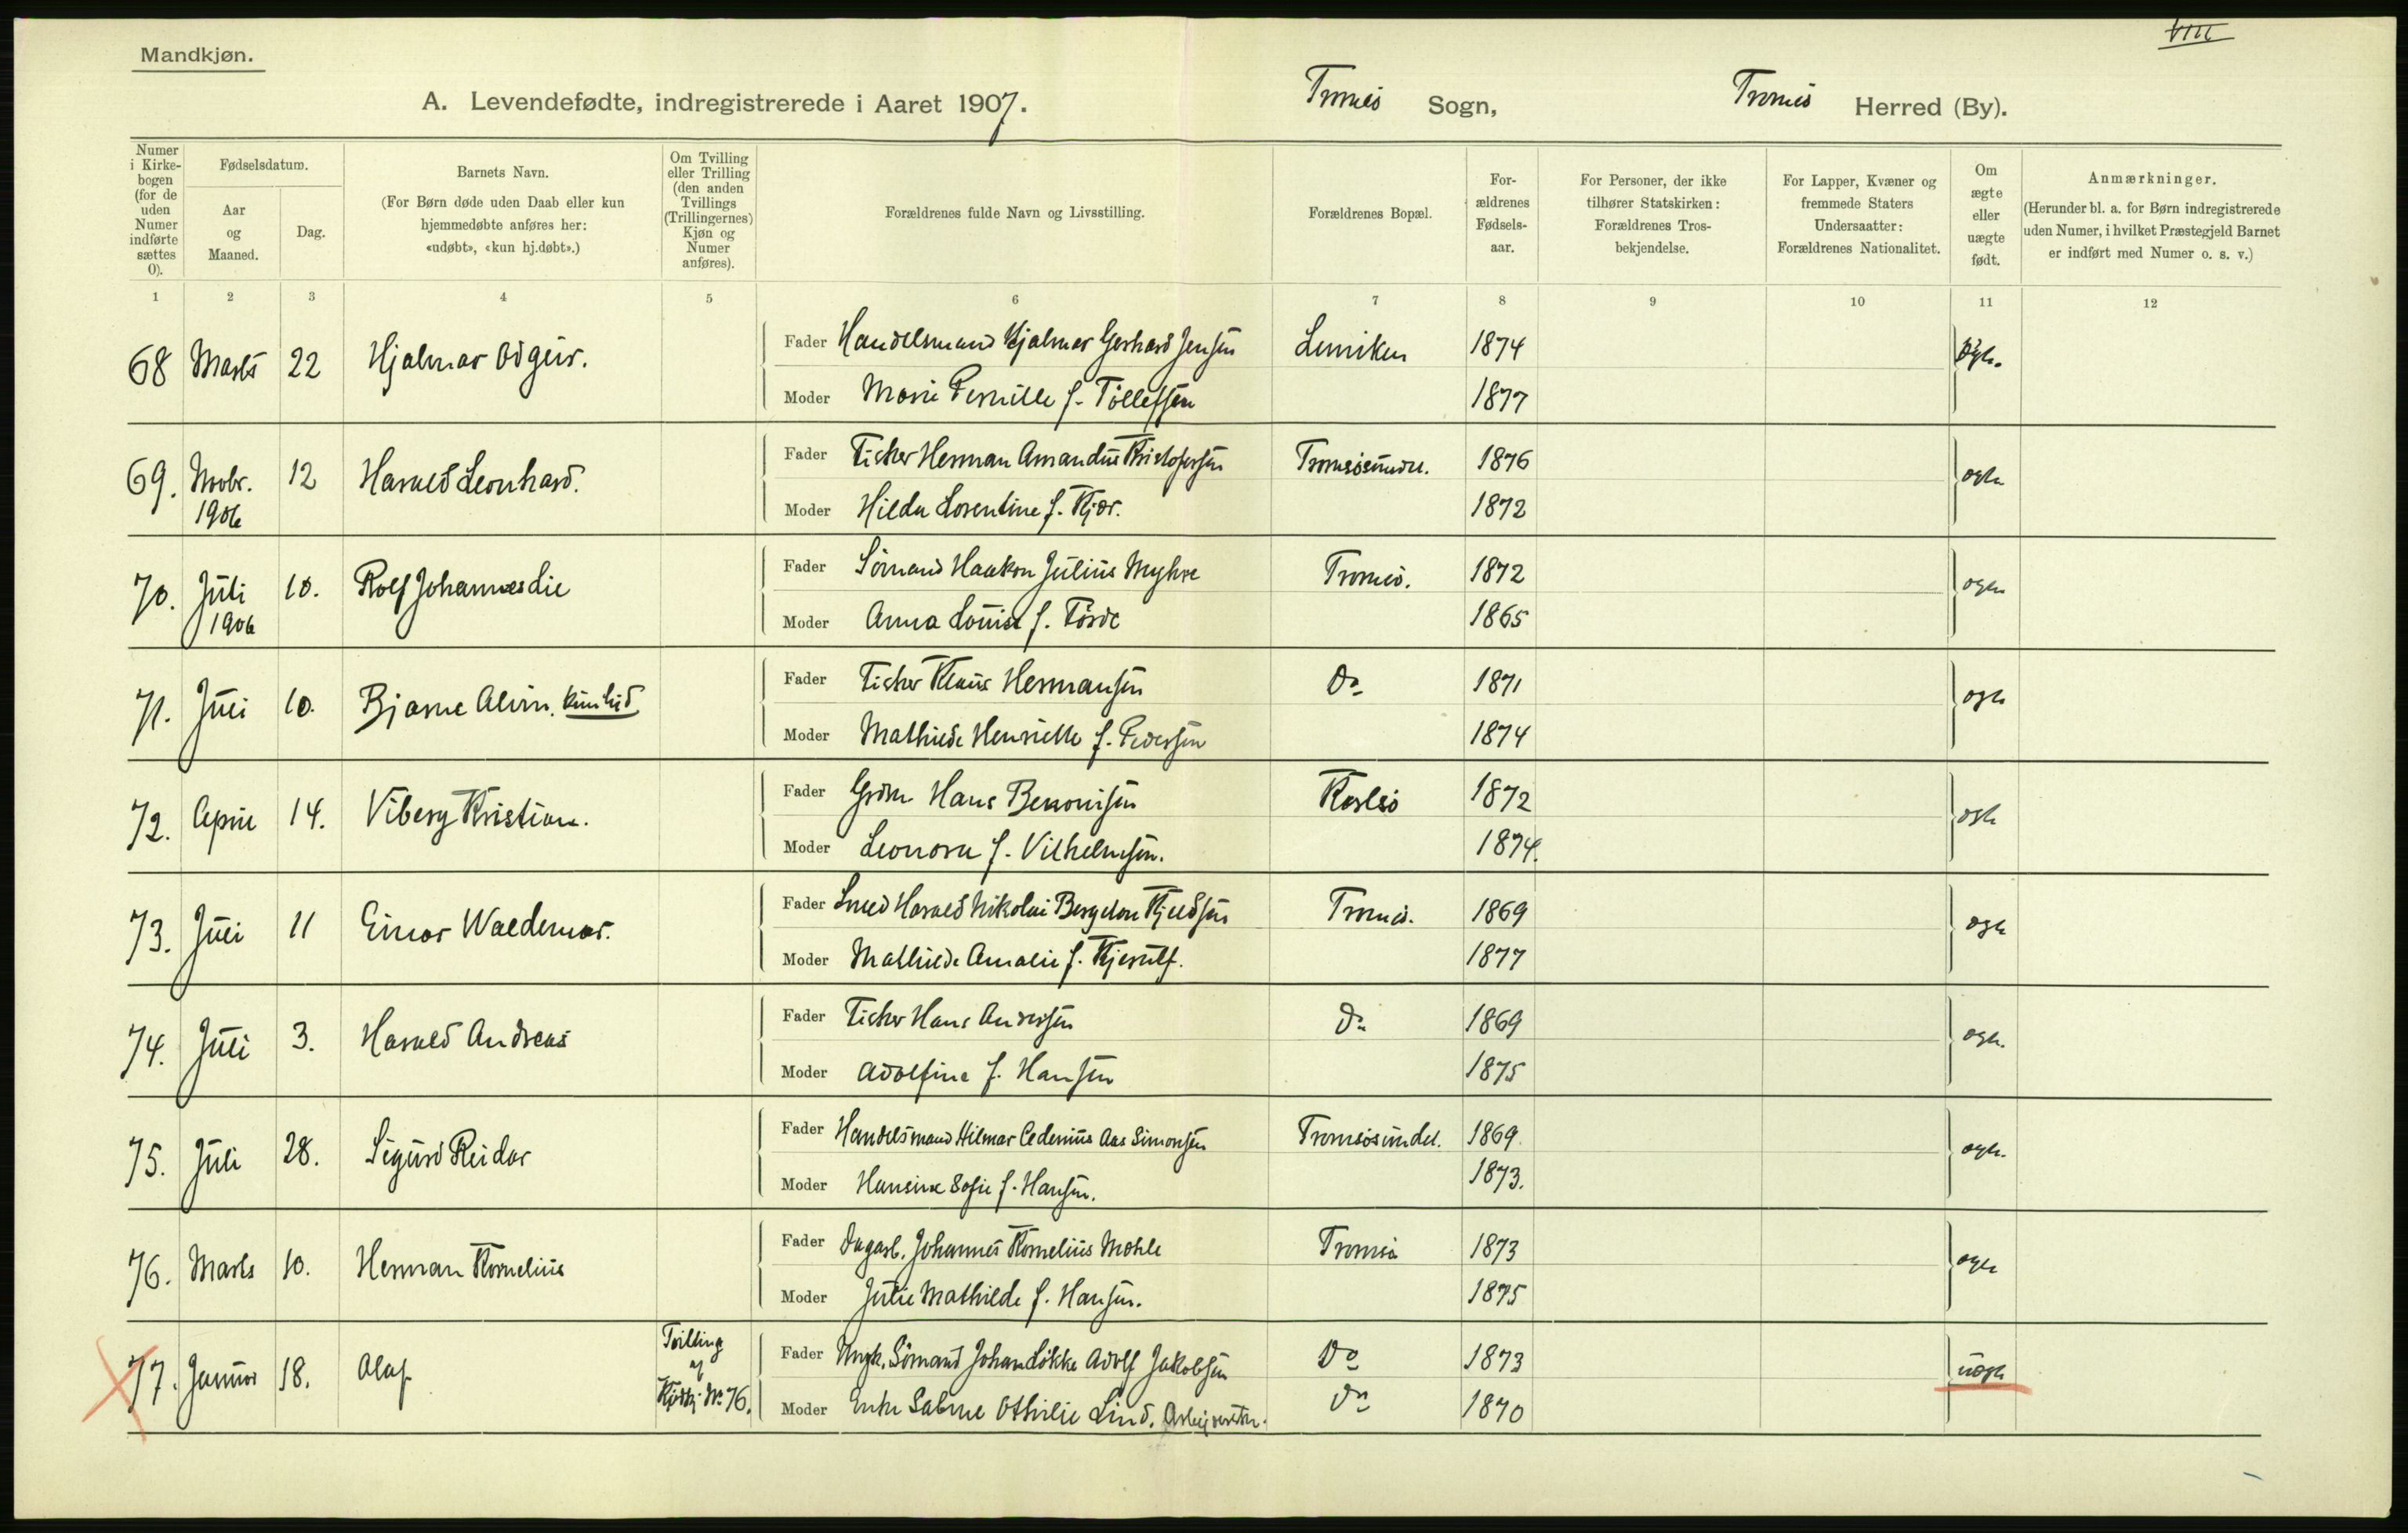 VIII
Mandkjøn.
A. Levendefødte, indregistrerede i Aaret 1907. Tromsø Sogn, Tromsø Herred (By).
Numer i Kirkebogen (for de uden Numer indførte sættes 0).
Fødselsdatum.
Aar og Maaned.
Dag.
Barnets Navn.
(For Børn døde uden Daab eller kun hjemmedøbte anføres her: «udøbt», «kun hj.døbt».)
Om Tvilling eller Trilling (den anden Tvillings (Trillingernes) Kjøn og Numer anføres).
Forældrenes fulde Navn og Livsstilling.
Forældrenes Bopæl.
For-ældrenes Fødsels-aar.
For Personer, der ikke tilhører Statskirken: Forældrenes Tros-bekjendelse.
For Lapper, Kvæner og fremmede Staters Undersaatter: Forældrenes Nationalitet.
Om ægte eller uægte født.
Anmærkninger.
(Herunder bl. a. for Børn indregistrerede uden Numer, i hvilket Præstegjeld Barnet er indført med Numer o. s. v.)
1 2 3 4 5 6 7 8 9 10 11 12
68 Marts 22 Hjalmar Odgeir. Fader Handelsmand Hjalmar Gerhard Jensen 1874 ægte.
Moder Marie Pernille f. Tollefsen 1877
69. Novbr. 1906 12 Harald Leonhard. Fader Fisker Herman Amandus Kristofersen Tromsøsundet. 1876 ægte
Moder Hilda Lorentine f. Kjær. 1872
70. Juli 1906 10. Rolf Johannes Lie Fader Sømand Haakon Julius Myhre Tromsø. 1872 ægte
Moder Anna Louise f. Førde 1865
71. Juli 10. Bjarne Alvin. Fader Fisker Klaus Hermansen Do 1871 ægte
Moder Mathilde Henriette f. Pedersen 1874
72. April 14. Viberg Kristian. Fader Grdm Hans Benonisen Karlsø 1872 ægte
Moder Leonora f. Vilhelmsen. 1874.
73. Juli 11 Einar Waldemar. Fader Smed Harald Nikolai Bergeton Kjeldsen Tromsø. 1869 ægte
Moder Mathilde Amalie f. Kjerulf. 1877
74. Juli 3. Harald Andreas Fader Fisker Hans Andersen Do 1869 ægte.
Moder Adolfine f. Hansen 1875
75. Juli 28. Sigurd Reidar Fader Handelsmand Hilmar Cedenius Aas Simonsen Tromsøsundet. 1869. ægte.
Moder Hansine Sofie f. Hansen. 1873.
76. Marts 10. Herman Kornelius Fader Dagarb. Johannes Kornelius Mohle Tromsø 1873 ægte
Moder Julie Mathilde f. Hansen. 1875
77. Januar 18. Olaf Tvilling af Kvdkj. No 76. Fader Ungk. Sømand Johan Løkke Adolf Jakobsen Do 1873 uægte
Moder Enke Sabine Othilie Lind. Arbeiderske. Do 1870